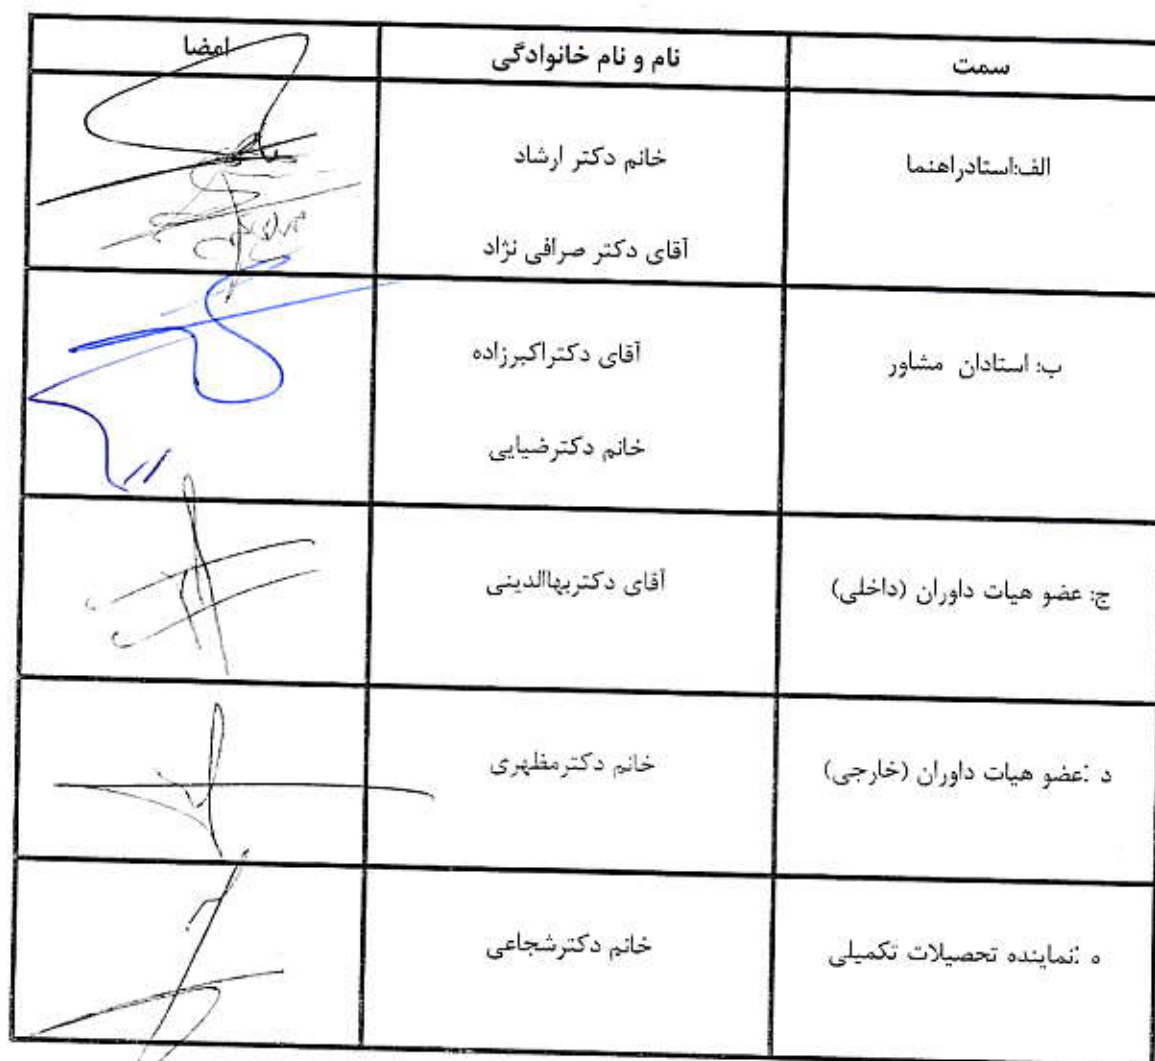 سمت نام و نام خانوادگی امضا
الف:استادراهنما خانم دکتر ارشاد
آقای دکتر صرافی نژاد
ب: استادان مشاور آقای دکتراکبرزاده
خانم دکترضیایی
ج: عضو هیات داوران (داخلی) آقای دکتربهاالدینی
د :عضو هیات داوران (خارجی) خانم دکترمظهری
ه :نماینده تحصیلات تکمیلی خانم دکترشجاعی